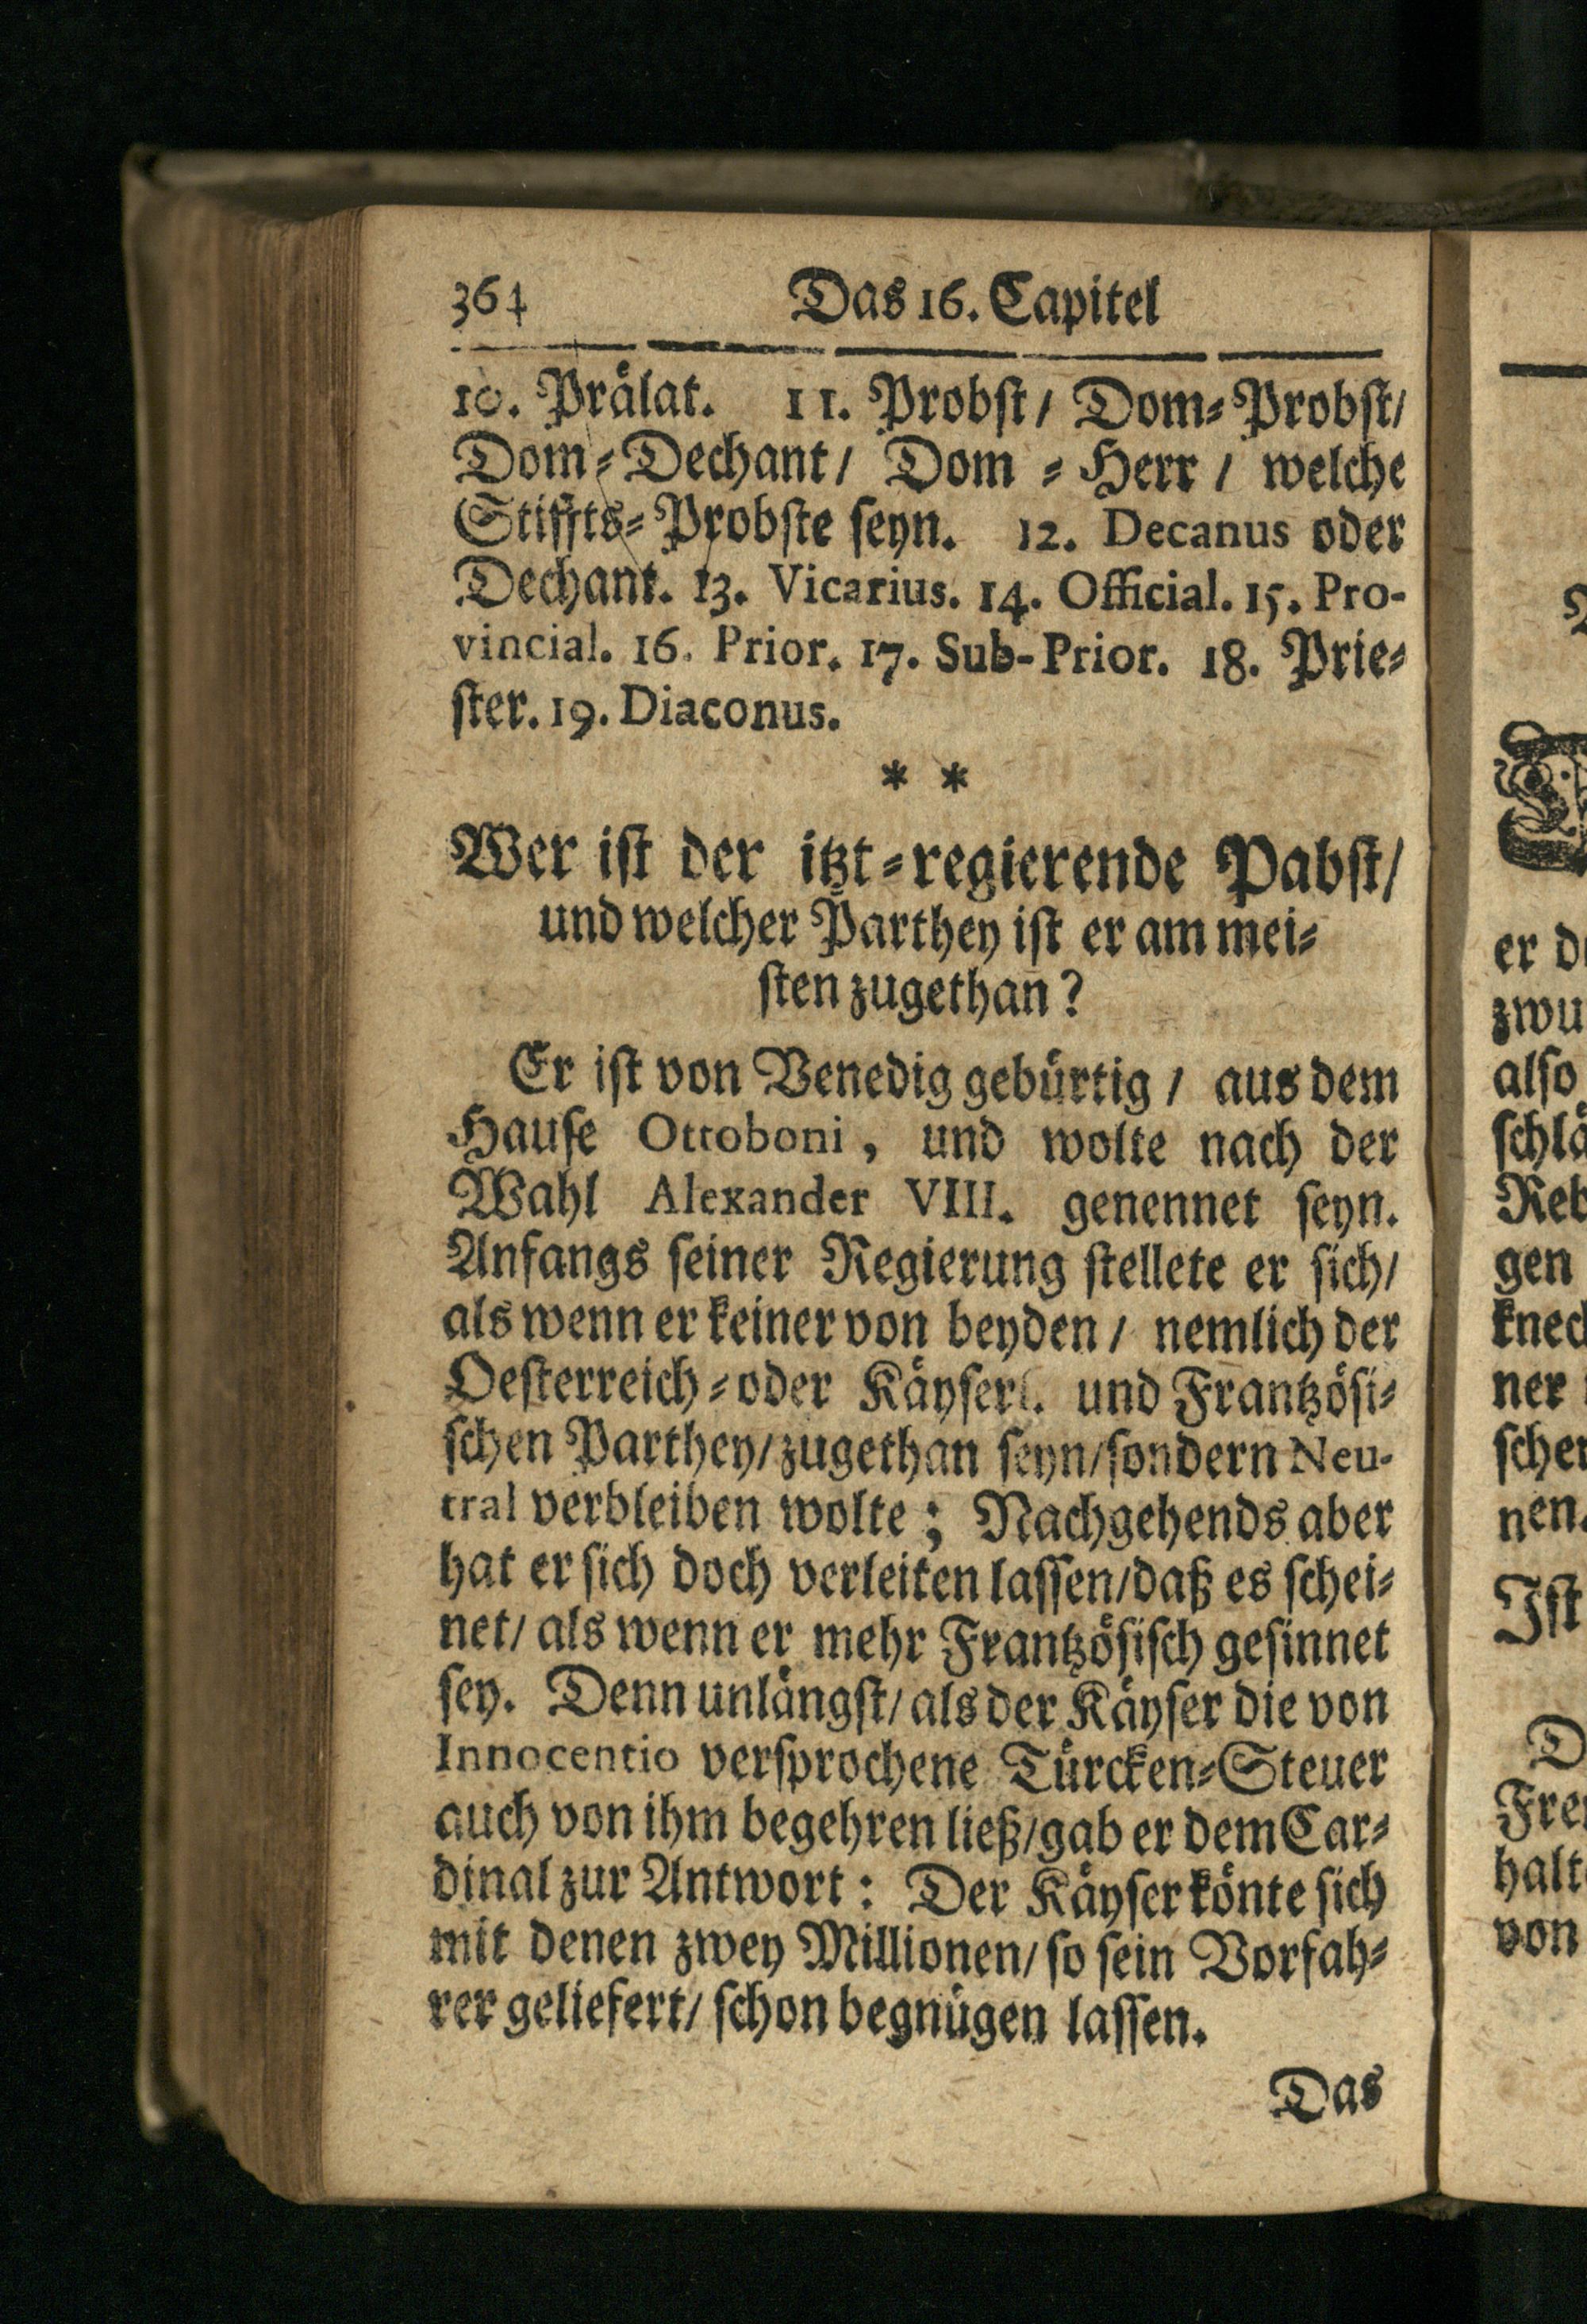 364 Das 16. Capitel
10. Prälat. 11. Probst/ Dom-Probst/
Dom-Dechant/ Dom-Herr/ welche
Stiffts-Probste seyn. 12. Decanus oder
Dechant. 13. Vicarius. 14. Official. 15. Pro-
vincial. 16. Prior. 17. Sub-Prior. 18. Prie-
ster. 19. Diaconus.
* *
Wer ist der itzt-regierende Pabst/
und welcher Parthey ist er am mei-
sten zugethan?
Er ist von Venedig gebürtig/ aus dem
Hause Ottoboni, und wolte nach der
Wahl Alexander VIII. genennet seyn.
Anfangs seiner Regierung stellete er sich/
als wenn er keiner von beyden/ nemlich der
Oesterreich-oder Käyserl. und Frantzösi-
schen Parthey/zugethan seyn/sondern Neu-
tral verbleiben wolte; Nachgehends aber
hat er sich doch verleiten lassen/daß es schei-
net/ als wenn er mehr Frantzösisch gesinnet
sey. Denn unlängst/ als der Käyser die von
Innocentio versprochene Türcken-Steuer
auch von ihm begehren ließ/gab er dem Car-
dinal zur Antwort: Der Käyser könte sich
mit denen zwey Millionen/ so sein Vorfah-
rer geliefert/ schon begnügen lassen.
Das
er
zwu
also
schlä
Reb
gen
knec
ner
nen.
Ist
halt
von